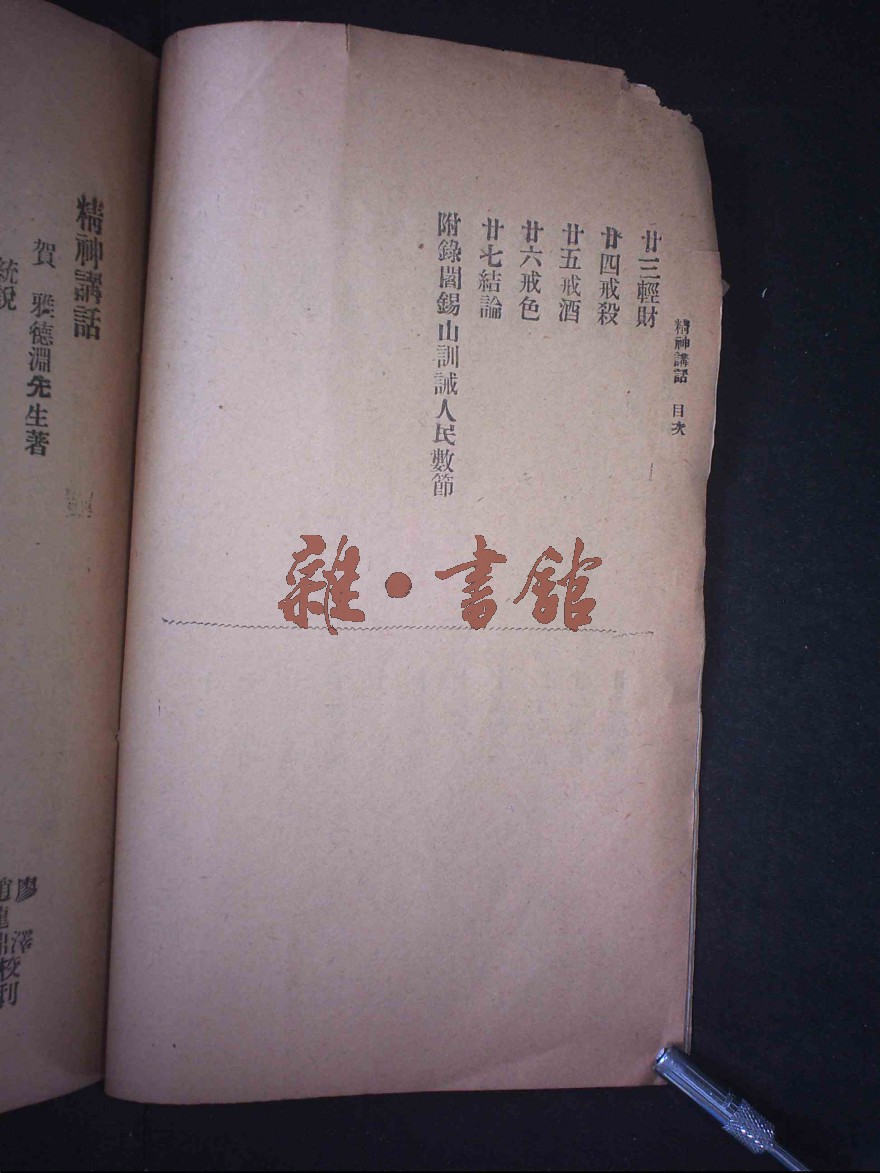 精神講話 目次
廿三輕財
廿四戒殺
廿五戒酒
廿六戒色
廿七結論
附錄閻錫山訓誡人民數節
雜·書館
精神講話
賀 雅德淵先生著
統說
廖 澤
校刊